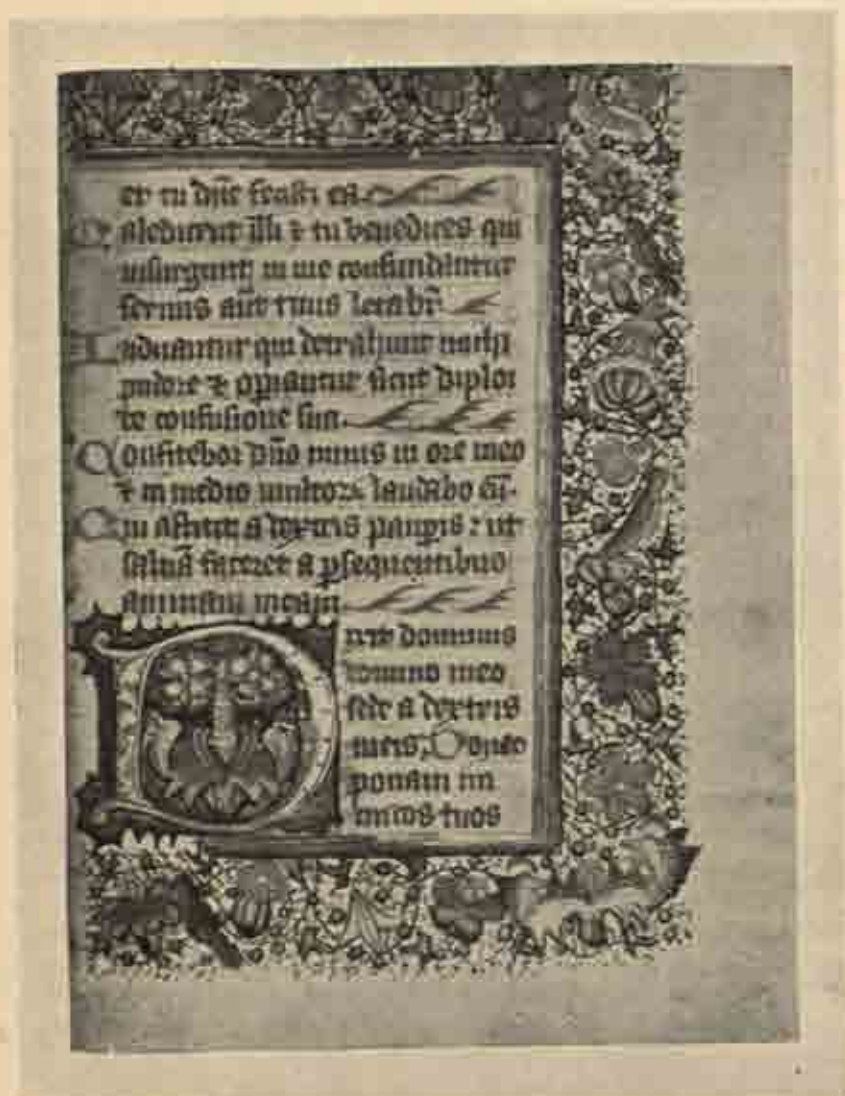 et tu dñe fecisti eā
Maledicent illi ⁊ tu benedices qui
insurgunt in me confundantur
seruus aūt tuus letabr̄
Induantur qui detrahunt michi
pudore ⁊ opiantur sicut diploi
de confusione sua.
Confitebor dño nimis in ore meo
⁊ in medio multoꝝ laudabo eū.
Qui astitit a dextris paupis : ut
saluā faceret a psequentibus
animam meam
Dixit dominus
domino meo
sede a dextris
meis, Donec
ponam ini
micos tuos